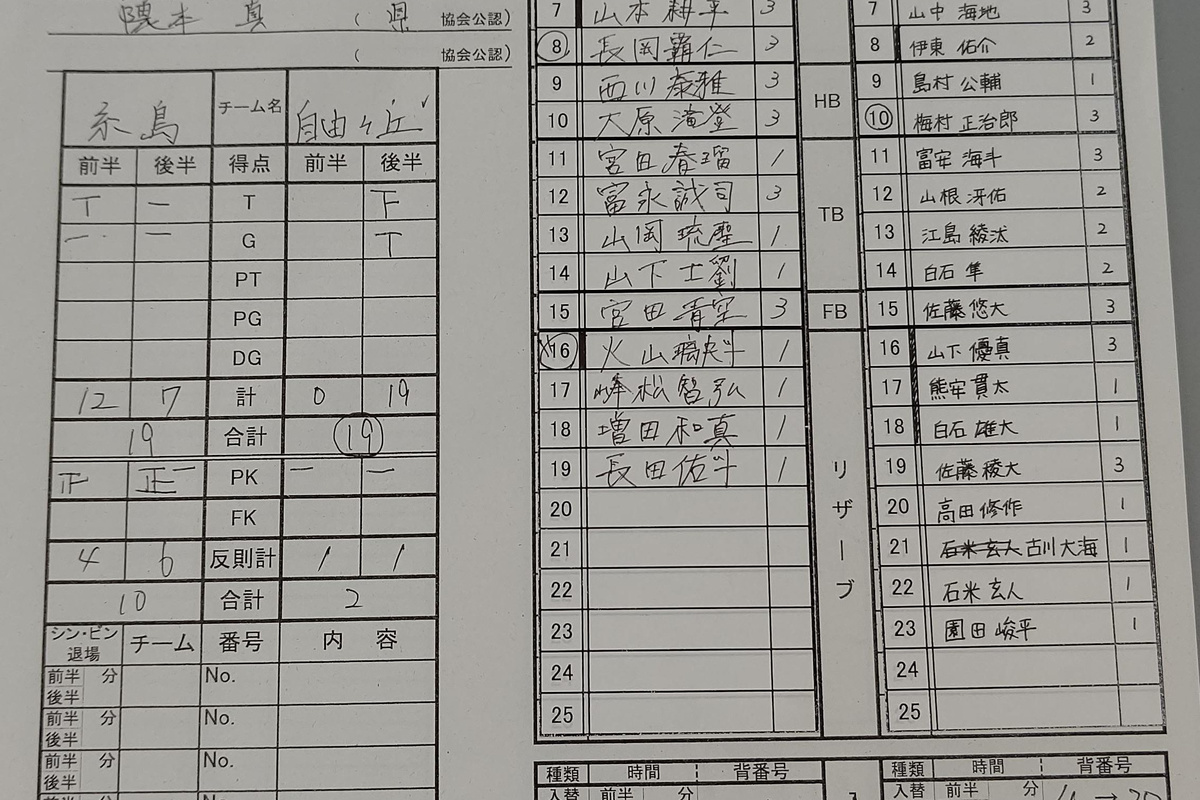 隈本 真 ( 県 協会公認)
( 協会公認)
糸島 チーム名 自由ヶ丘
前半 後半 得点 前半 後半
T
G
PT
PG
DG
12 7 計 0 19
19 合計 19
正一 PK 一 一
FK
4 6 反則計 1 1
10 合計 2
シン・ビン 退場 チーム 番号 内容
前半 分 No.
後半
前半 分 No.
後半
前半 分 No.
後半
前半
7 山本 耕平 3
8 長岡 覇仁 3
9 西川 泰雅 3
10 大原 滝登 3
11 宮田 春瑠 1
12 富永 誠司 3
13 山岡 琉聖 1
14 山下 士劉 1
15 宮田 青空 3
16 火山 1
17 峰松 智弘 1
18 増田 和真 1
19 長田 佑斗 1
20
21
22
23
24
25
HB
TB
FB
リザーブ
7 山中 海地 3
8 伊東 佑介 2
9 島村 公輔 1
10 梅村 正治郎 3
11 富安 海斗 3
12 山根 冴佑 2
13 江島 綾汰 2
14 白石 隼 2
15 佐藤 悠大 3
16 山下 優真 3
17 熊安 貫太 1
18 白石 雄大 1
19 佐藤 稜大 3
20 高田 修作 1
21 石米 玄人 古川 大海 1
22 石米 玄人 1
23 園田 峻平 1
24
25
種類 時間 背番号
入替 前半 分
種類 時間 背番号
入替 前半 分 → 20